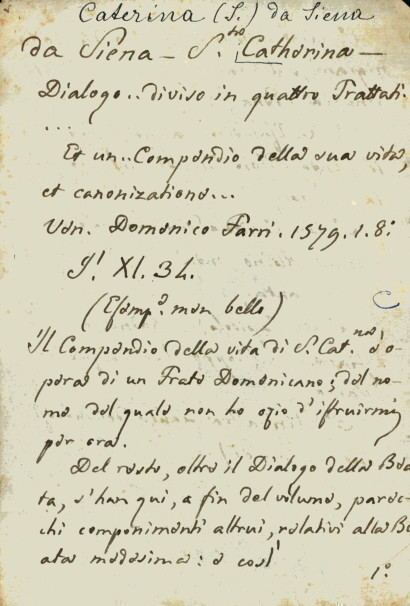 Caterina (S.) da Siena
da Siena – S.ta Catherina –
Dialogo.. diviso in quattro Trattati.
...
Et un.. Compendio della sua vita,
et canonizatione...
Ven. Domenico Farri. 1579. 1. 8:
J! XI. 34.
(Esemp.o men bello)
Il Compendio della vita di S. Cat.na è o-
pera di un Frate Domenicano; del no-
me del quale non ho ozio d'istruirmi
per ora.
Del resto, oltre il Dialogo della Bea-
ta, s'han qui, a fin del volume, parec-
chi componimenti altrui, relativi alla Be-
ata medesima: e così
1.o